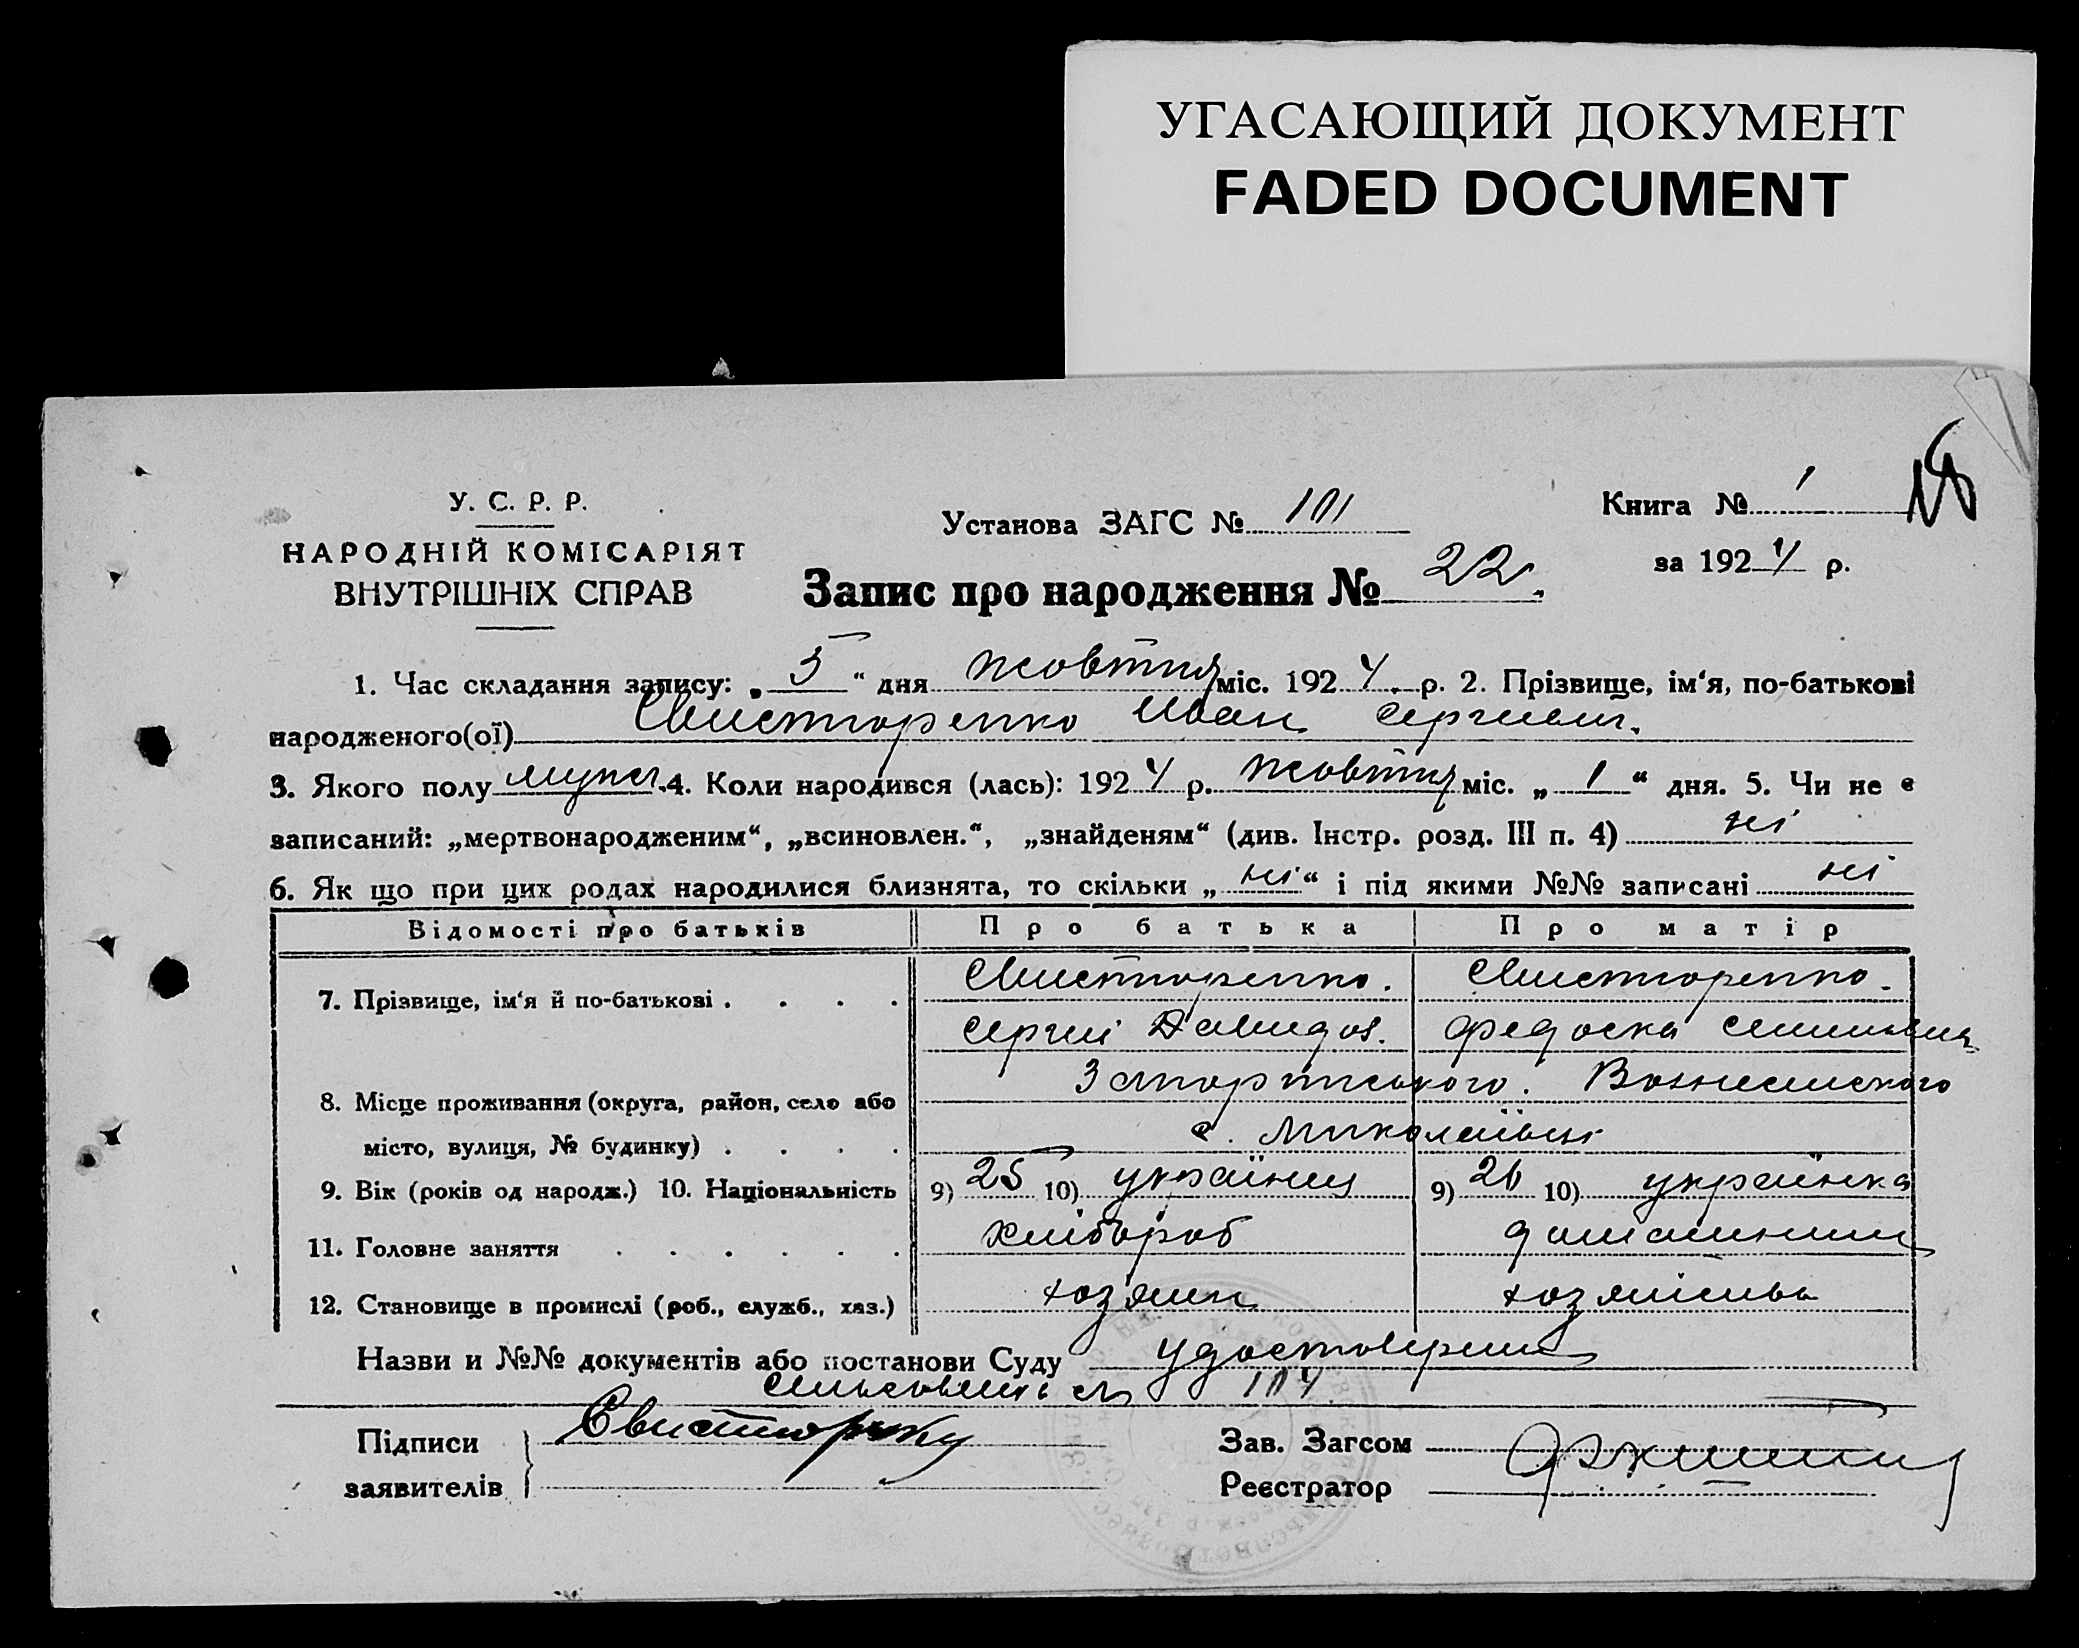 УГАСАЮЩИЙ ДОКУМЕНТ
FADED DOCUMENT
У. С. Р. Р.
НАРОДНІЙ КОМІСАРІЯТ
ВНУТРІШНІХ СПРАВ
Установа ЗАГС № 101
Книга № 1
за 1924 р.
Запис про народження № 22.
1. Час складання запису: „5“ дня жовтня міс. 1924 р. 2. Прізвище, ім‘я, по-батькові
народженого(ої) Свисторенко Иван Сергиевич.
3. Якого полу мужс. 4. Коли народився (лась): 1924 р. жовтня міс. „1“ дня. 5. Чи не є
записаний: „мертвонародженим“, „всиновлен.“, „знайденям“ (див. Інстр. розд. III п. 4) ні
6. Як що при цих родах народилися близнята, то скільки „ні“ і під якими №№ записані ні
Відомості про батьків Про батька Про матір
7. Прізвище, ім‘я й по-батькові . . . . Свисторенко. Свисторенко.
Сергій Давидов. Федоска
8. Місце проживання (округа, район, село або Запоріжського. Вознесенского
місто, вулиця, № будинку) . . . . с. Миколаївці
9. Вік (років од народж.) 10. Національність 9) 25 10) українец 9) 26 10) українка
11. Головне заняття . . . . . . хлібороб домашнии
12. Становище в промислі (роб., служб., хаз.) хозяин хозяйства
Назви и №№ документів або постанови Суду удостоверения
104
Підписи
заявителів
Свисторенко
Зав. Загсом
Реєстратор